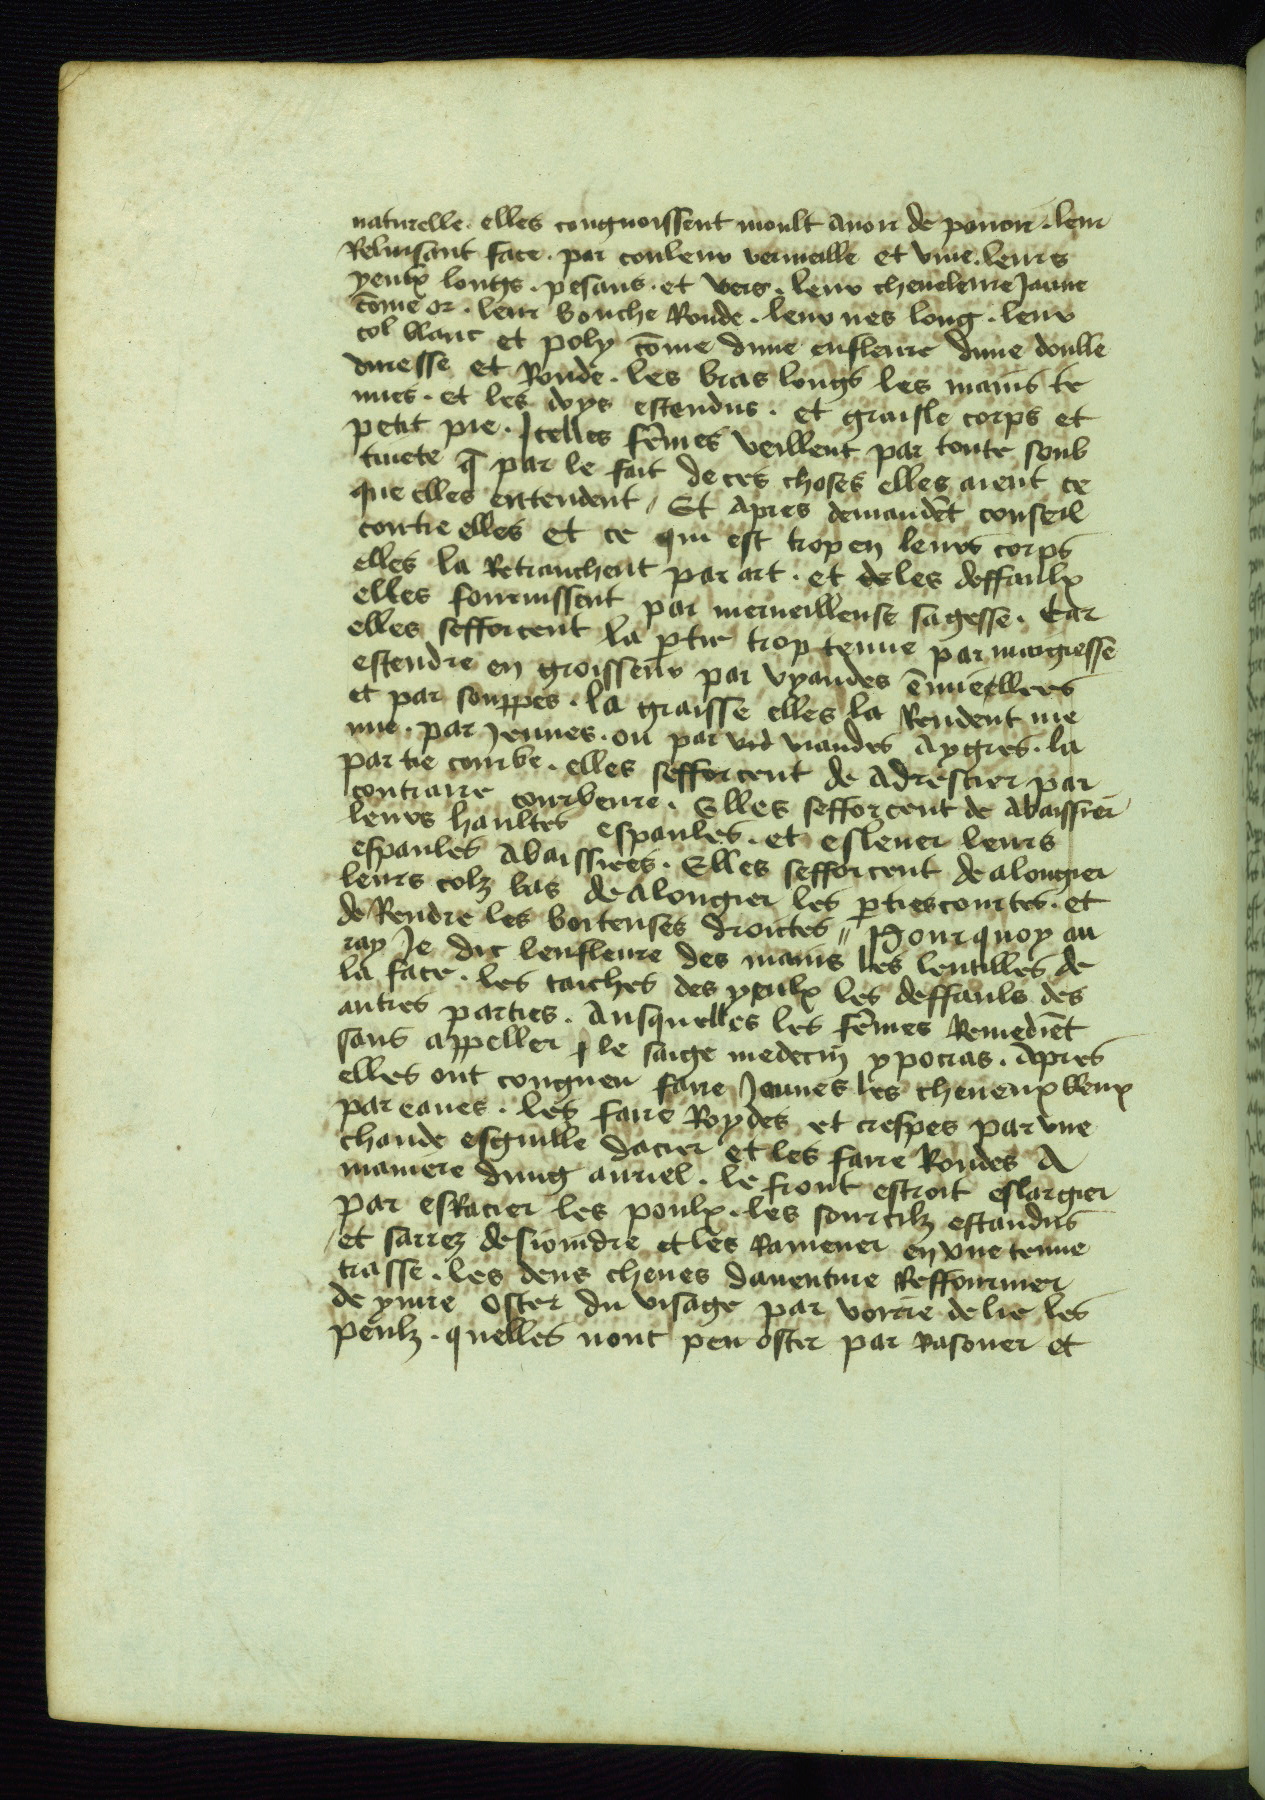 naturelle. elles congnoissent moult avoir de povoir. leur
Reluisant face. par couleur vermeille et vive. leurs
yeulx longs. pesans. et vers. leur cheveleure Jaune
cōme or. leur bouche Ronde. leur nes long. leur
col blanc et poly cōme dune enfleure dune doulle
duresse et Ronde. les bras longs les mains te
nues. et les doys estendus. et graisle corps et
petit pie. Jcelles fēmes veillent par toute soub
tivete q̄ par le fait de ces choses elles aient ce
que elles entendent / Et Apres demandēt conseil
contre elles et ce qui est trop en leurs corps
elles la Retranchent par art. et de les deffaulx
elles fournissent par merveilleuse sagesse. Car
elles sefforcent la ꝑtie trop tenue par maigresse
estendre en groisseur par vyandes ēmieellees
et par souppes. la graisse elles la Rendent me
nue. par Jeunes. ou par viandes Aygres. la
partie courbe. elles sefforcent de Adrescier par
contraire courbeure. Elles sefforcent de Abaissier
leurs haultes espaules. et eslever leurs
espaules Abaissiees. Elles sefforcent de alongier
leurs colz bas de Alongier les ꝑties courtes. et
de Rendre les boiteuses droictes // Pourquoy au
ray Je dit lenfleure des mains les lentilles de
la face. les taiches des yeulx les deffauls des
autres parties. Ausquelles les fēmes Remediēt
sans appeller le saige medecin ypocras. Apres
elles ont congneu faire Jaunes les cheveux bleux
par eaues. les faire Roydes et crespes par vne
chaude esguille dacier et les faire Rondes A
maniere dung auriel. le front estroit eslargier
par esRacier les poulx. les sourcilz estandus
et sarrez desioindre et les Ramener en vne tenue
trasse. les dens cheues daventure Reffourmer
de yvire Oster du visage par voirre delie les
peulz. quelles nont peu oster par Rasouer et